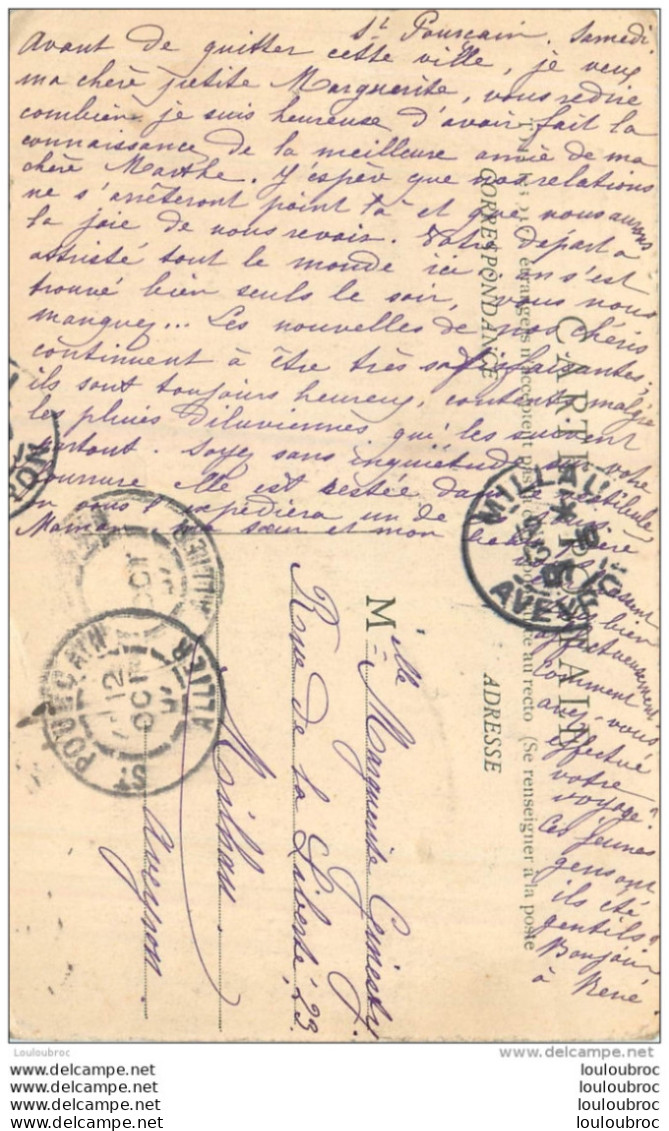 St Pourçain. Samedi.
Avant de quitter cette ville, je veux
ma chère petite Marguerite, vous redire
combien je suis heureuse d'avoir fait la
connaissance de la meilleure amie de ma
chère Marthe. J'espere que nos relations
ne s'arrêteront point là et que nous aurons
la joie de nous revoir. Votre départ a
attristé tout le monde ici, on s'est
trouvé bien seuls le soir, vous nous
manquez... Les nouvelles de nos chéris
continuent à être très satisfaisantes;
ils sont toujours heureux, contents malgré
les pluies diluviennes qui les suivent
partout. Soyez sans inquiétude sur votre
fourrure elle est restée dans le vestibule
on vous l'expédiera un de
Maman, ma sœur et mon frère
bien
affectueusement
Comment
avez-vous
effectué
votre
voyage?
Ces jeunes
gens ont
ils été
gentils?
Bonjour
à René.
CARTE POSTALE
CORRESPONDANCE
ADRESSE
étrangers n'acceptent pas
au recto (Se renseigner à la poste
Mlle Marguerite Ginesty.
Rue de la Liberté, 23.
Milhau.
Aveyron.
MILLAU
AVEYRON
ST POURÇAIN
12
OCT
ALLIER
OCT
ALLIER
Louloubroc
delcampe.net
louloubroc
louloubroc
louloubroc
louloubroc
louloubroc
louloubroc
louloubroc
louloubroc